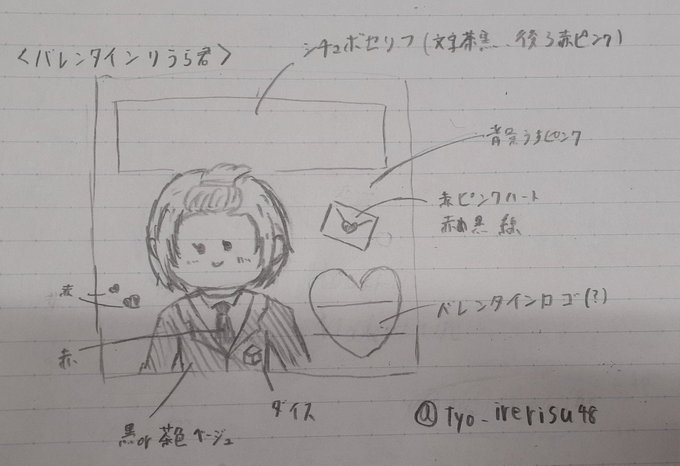 <バレンタインりうら君>
シチュボセリフ(文字茶黒、後ろ赤ピンク)
背景うすピンク
赤ピンクハート
赤 黒 線
赤
バレンタインロゴ(?)
赤
ダイス
黒or茶色ベージュ
@tyo_irerisu48